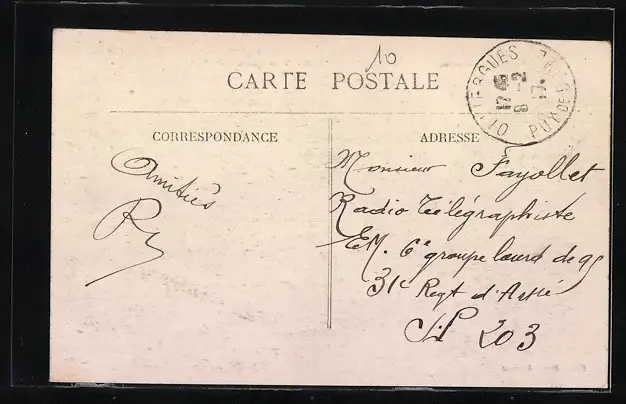 10
CARTE POSTALE
OLLIERGUES PUY DE D
17 45
8 - 2
17
CORRESPONDANCE
ADRESSE
Amitiés
Monsieur Fayollet
Radio Télégraphiste
EM. 6e groupe lourd de 95
31e Regt d'Artie
S.P 203